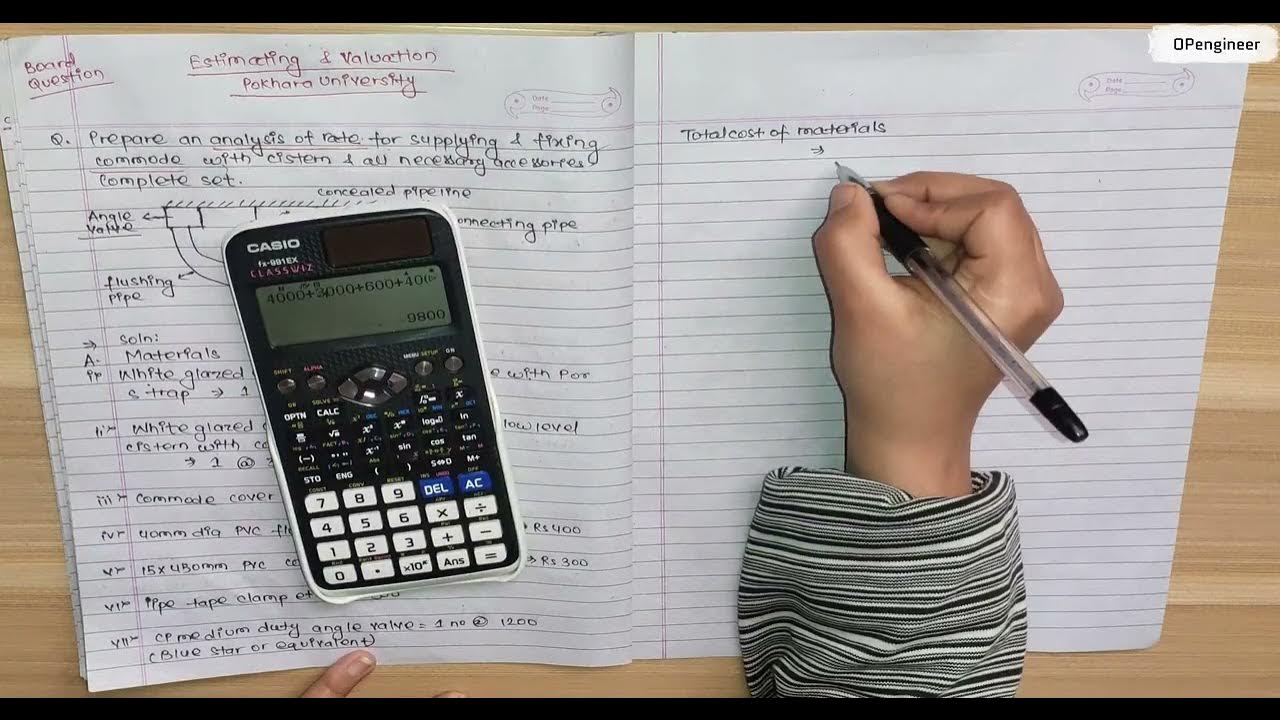 OPengineer
Board
Question
Estimating & Valuation
Pokhara University
Date
Page
Q. Prepare an analysis of rate for supplying & fixing
commode with cistern & all necessary accessories
complete set.
concealed pipe line
Angle
valve
onnecting pipe
flushing
pipe
⇒ Soln:
A. Materials
i) White glazed
e with P or
S trap → 1
ii) White glazed
low level
cistern with
→ 1 @
iii) Commode cover
iv) 40mm dia PVC
→ Rs 400
v) 15x450mm PVC
→ Rs 300
vi) Pipe tape clamp
vii) CP medium duty angle valve = 1 no @ 1200
(Blue star or equivalent)
Total cost of materials
⇒
Date
Page
CASIO
fx-991EX
CLASSWIZ
4000+3000+600+400
9800
SHIFT ALPHA MENU SETUP ON
OPTN CALC
log ln
(−) sin cos tan
STO ENG ( ) S⇔D M+
7 8 9 DEL AC
4 5 6 × ÷
1 2 3 + −
0 . ×10ˣ Ans =